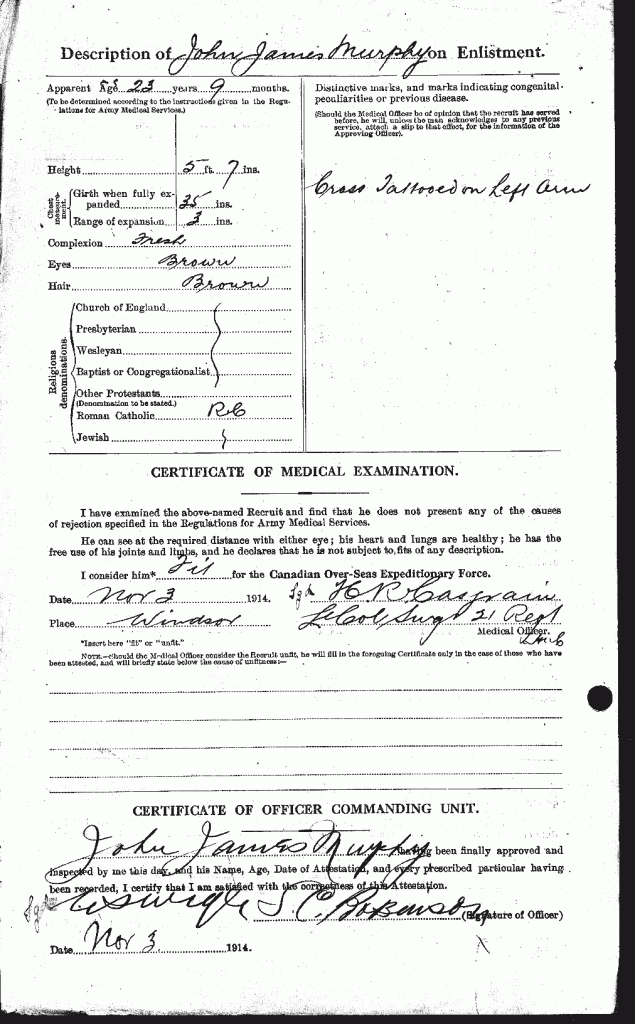 Description of John James Murphy on Enlistment.
Apparent Age 23 years 9 months.
(To be determined according to the instructions given in the Regulations for Army Medical Services.)
Height 5 ft. 7 ins.
Chest measurement.
Girth when fully expanded 35 ins.
Range of expansion 3 ins.
Complexion Fresh
Eyes Brown
Hair Brown
Religious denominations.
Church of England
Presbyterian
Wesleyan
Baptist or Congregationalist
Other Protestants
(Denomination to be stated.)
Roman Catholic RC
Jewish
Distinctive marks, and marks indicating congenital
peculiarities or previous disease.
(Should the Medical Officer be of opinion that the recruit has served
before, he will, unless the man acknowledges to any previous
service, attach a slip to that effect, for the information of the
Approving Officer).
Cross Tattooed on Left Arm
CERTIFICATE OF MEDICAL EXAMINATION.
I have examined the above-named Recruit and find that he does not present any of the causes
of rejection specified in the Regulations for Army Medical Services.
He can see at the required distance with either eye; his heart and lungs are healthy; he has the
free use of his joints and limbs, and he declares that he is not subject to fits of any description.
I consider him* Fit for the Canadian Over-Seas Expeditionary Force.
Date Nov 3 1914. Sgd H R Casgrain
Place Windsor Lt Col Surg 21 Regt
Medical Officer.
*Insert here "fit" or "unfit."
NOTE.—Should the Medical Officer consider the Recruit unfit, he will fill in the foregoing Certificate only in the case of those who have
been attested, and will briefly state below the cause of unfitness:—
CERTIFICATE OF OFFICER COMMANDING UNIT.
John James Murphy having been finally approved and
inspected by me this day, and his Name, Age, Date of Attestation, and every prescribed particular having
been recorded, I certify that I am satisfied with the correctness of this Attestation.
Sgd
(Signature of Officer)
Date Nov 3 1914.